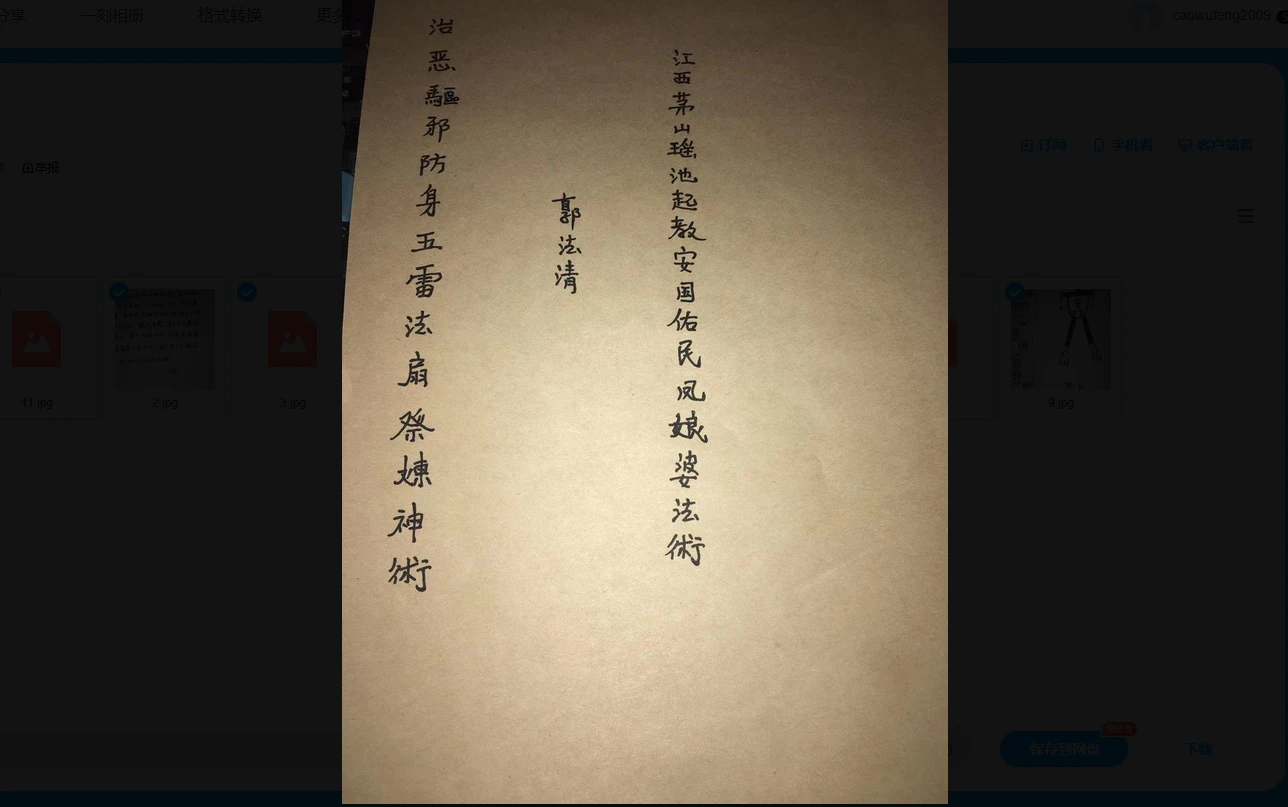 江西茅山瑶池起教安国佑民凤娘婆法術
郭法清
治恶驅邪防身五雷法扇祭煉神術
分享
一刻相册
格式转换
更多
caowufeng2009
举报
订阅
手机看
客户端看
11.jpg
2.jpg
3.jpg
9.jpg
保存到网盘
下载